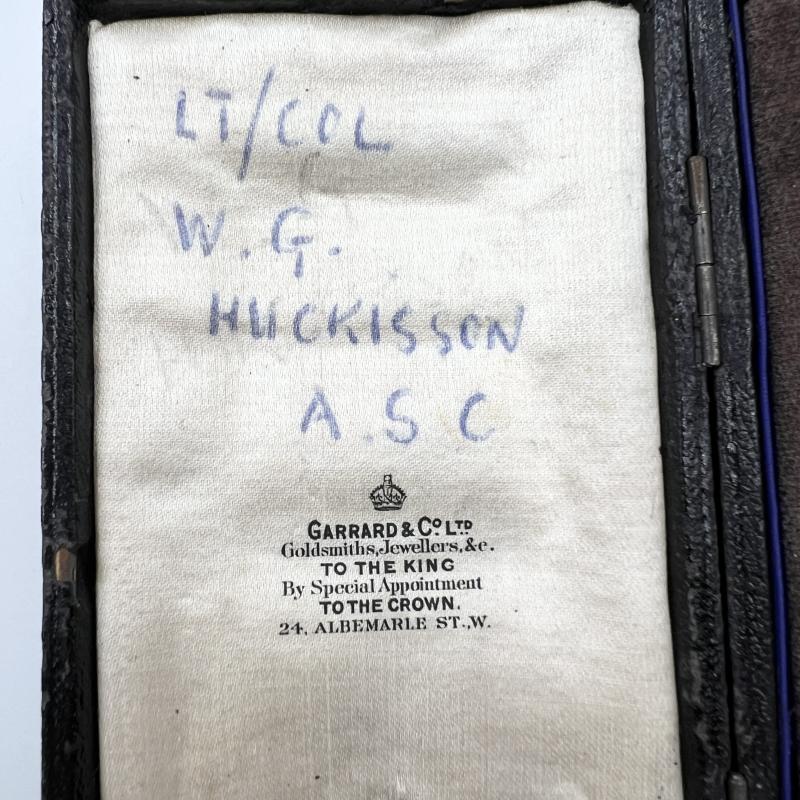 LT/COL
W. G.
HUCKISSON
A.S C
GARRARD & Co LTD
Goldsmiths, Jewellers, &c.
TO THE KING
By Special Appointment
TO THE CROWN.
24, ALBEMARLE ST., W.